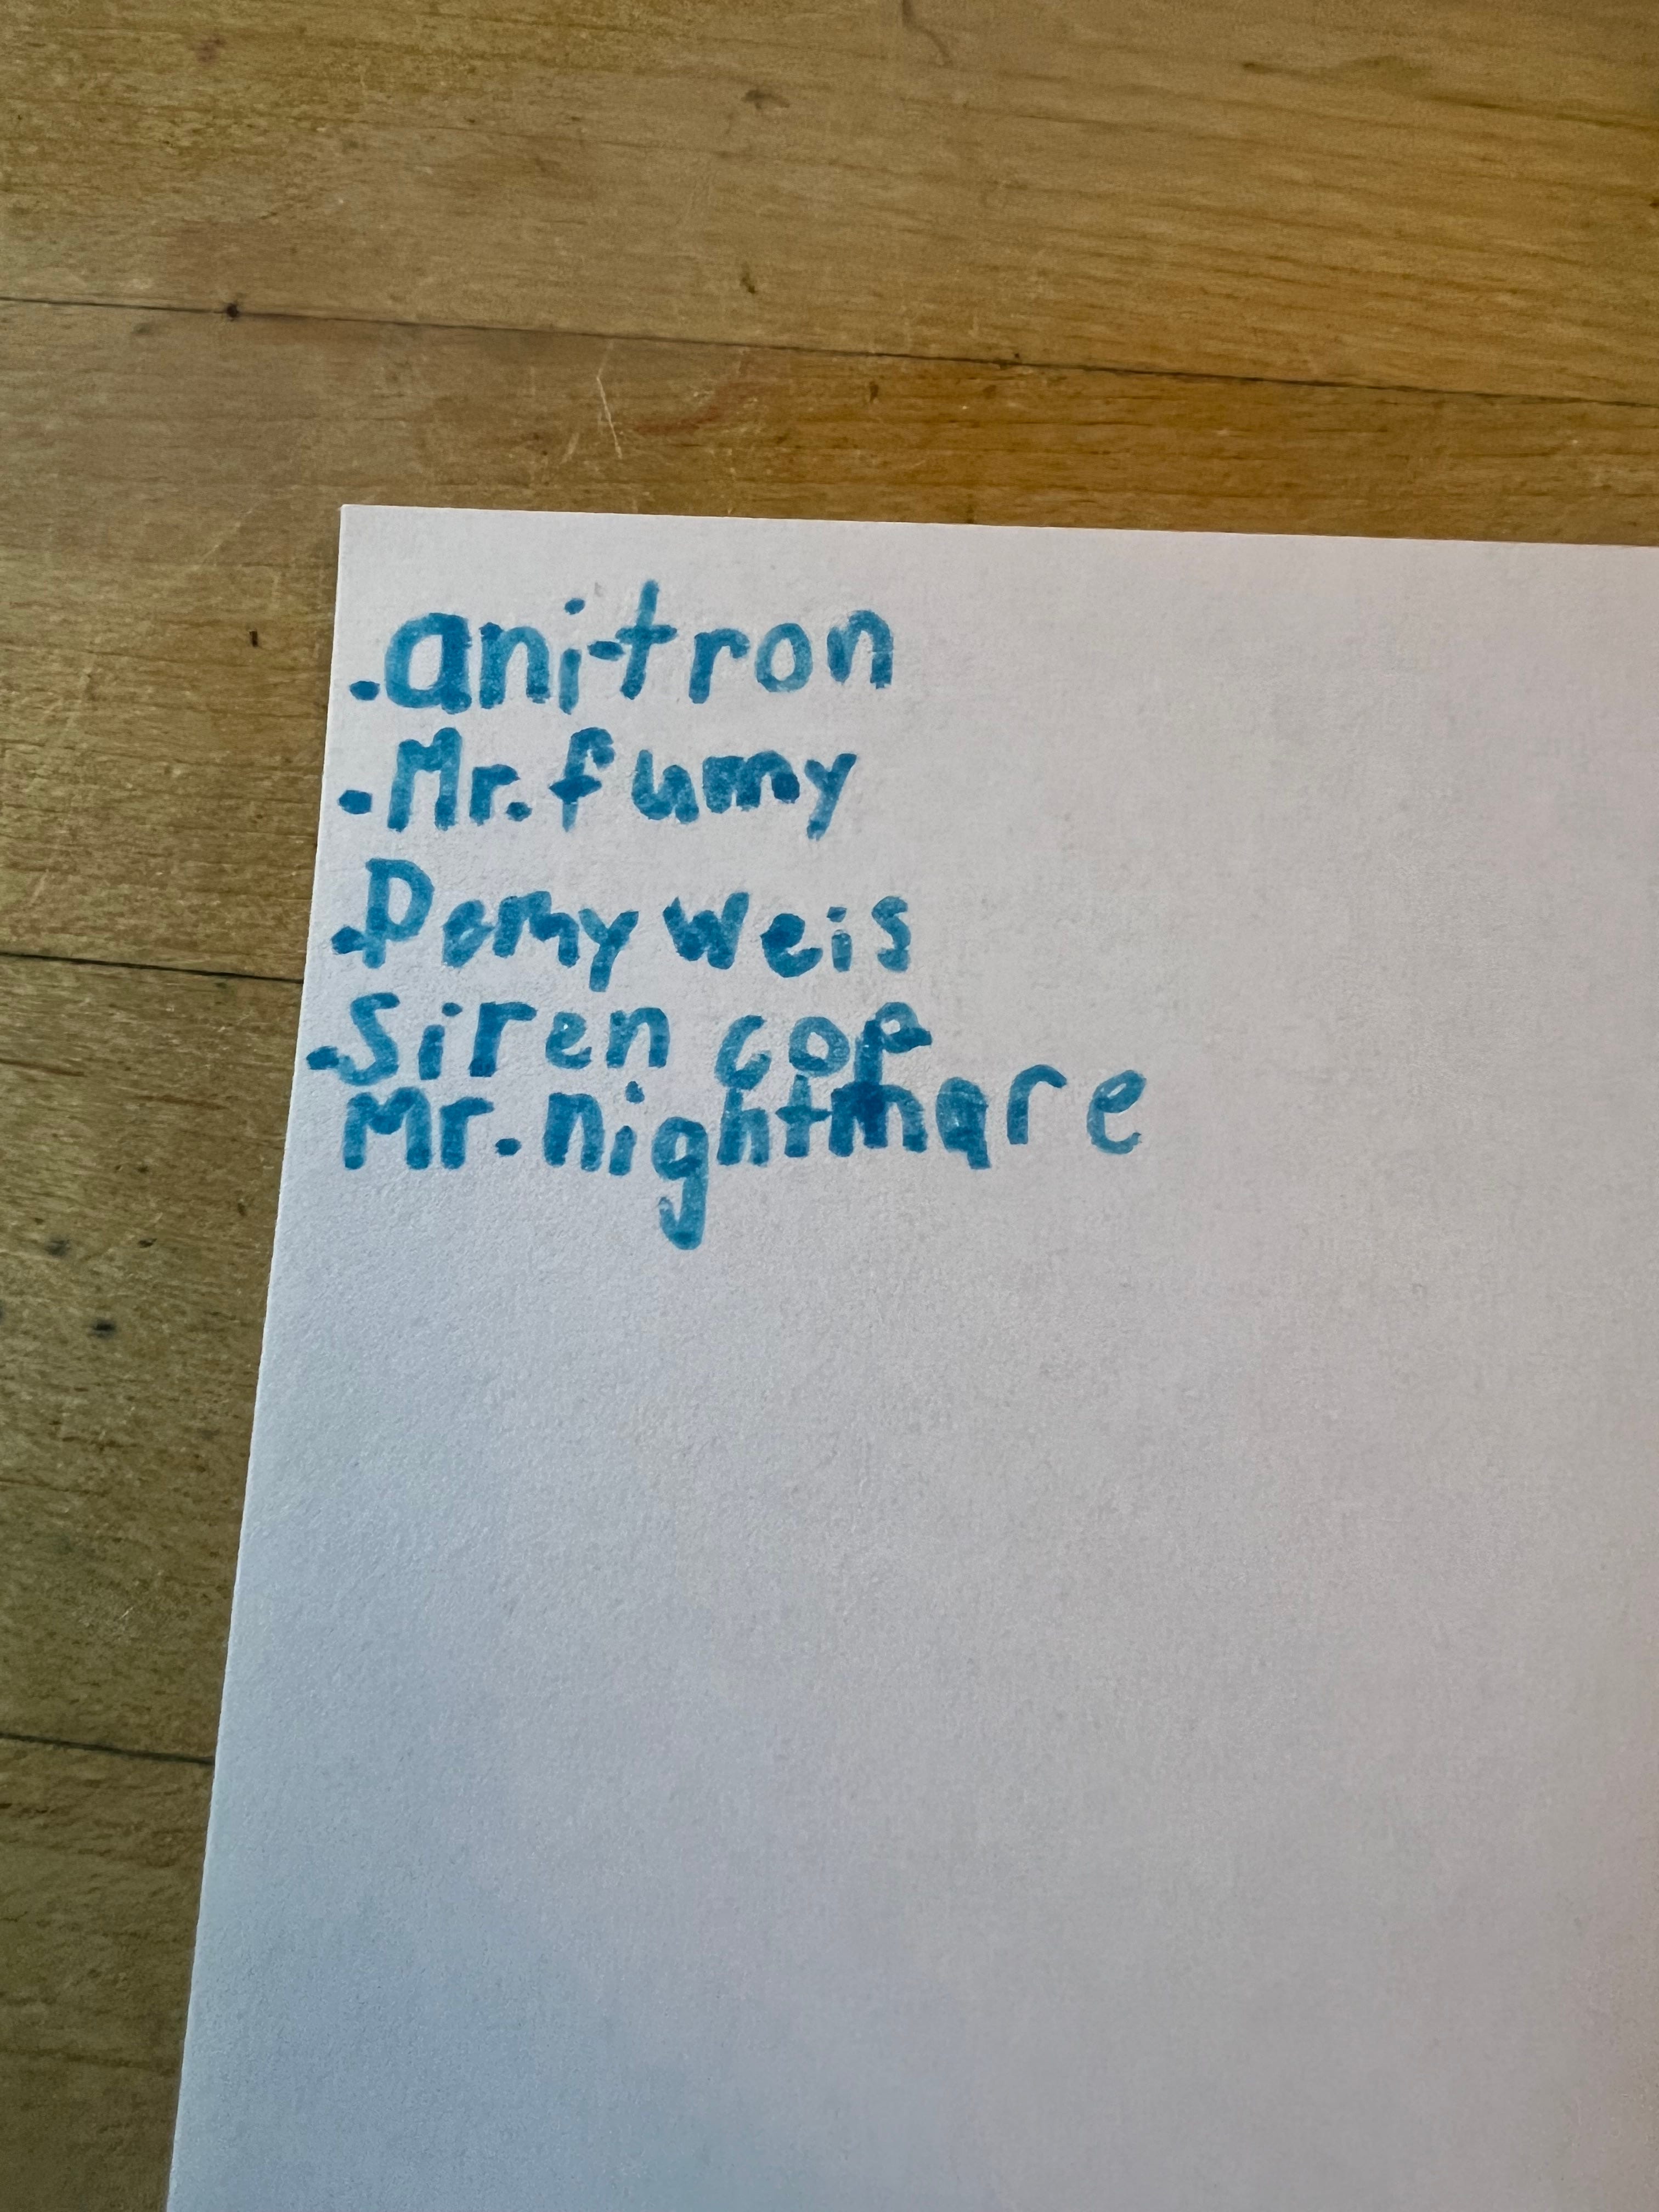 .anitron
.Mr. fumy
.Pemy weis
.Siren cop
Mr. nightmare